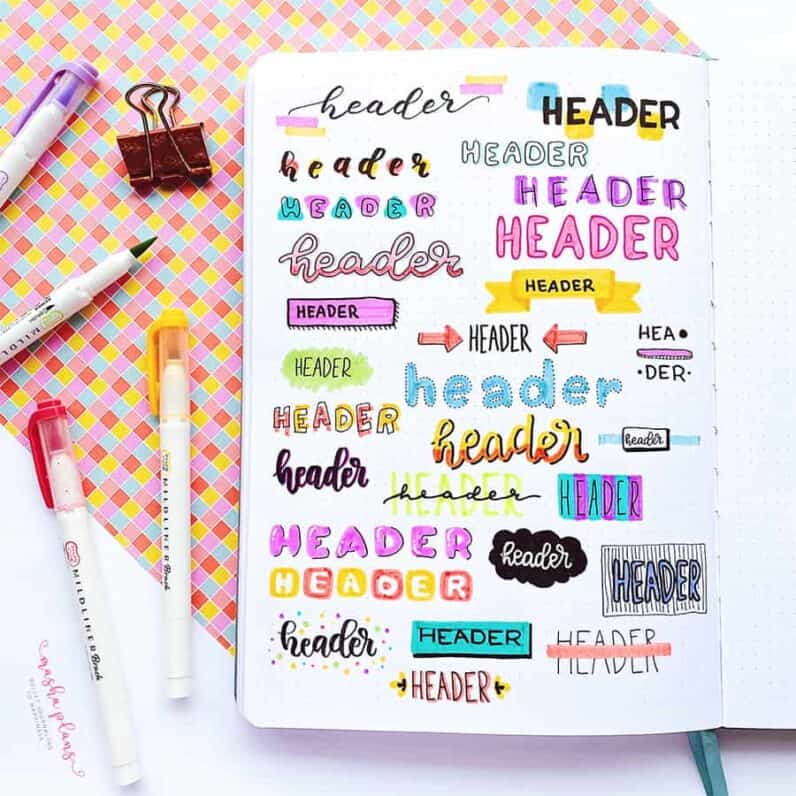 header
HEADER
header
HEADER
HEADER
HEADER
header
HEADER
HEADER
HEADER
HEADER
HEA
·DER·
HEADER
header
HEADER
header
header
header
HEADER
header
HEADER
HEADER
header
HEADER
HEADER
header
HEADER
HEADER
HEADER
MILDLINER
MILDLINER Brush
MILDLINER Brush
masha plans
BULLET JOURNALING
TO HAPPINESS